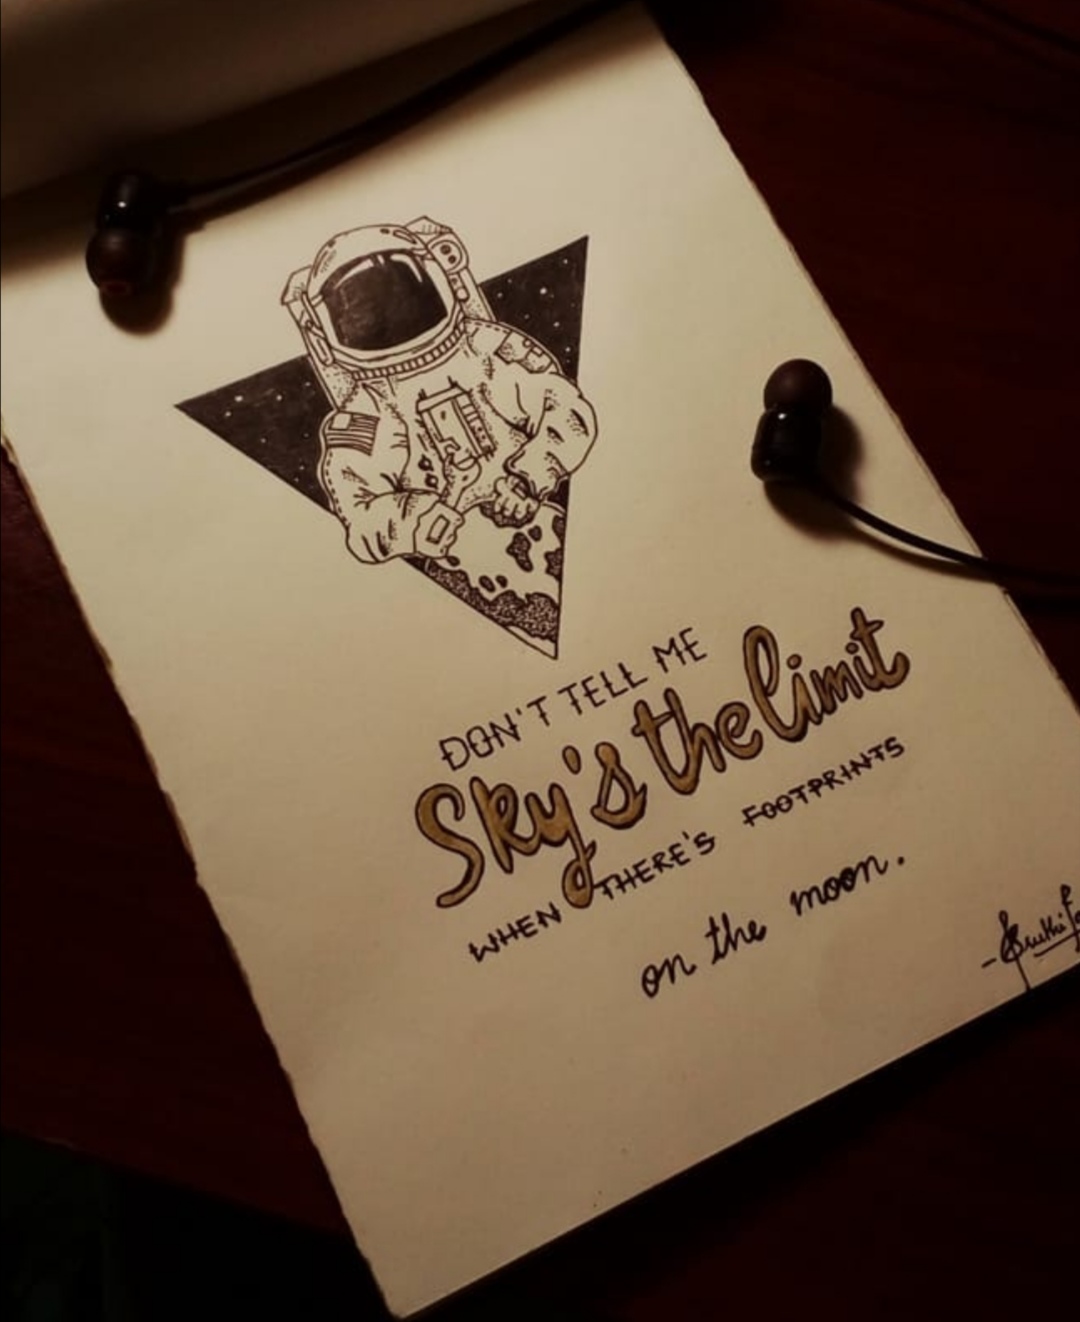 DON'T TELL ME
Sky's the limit
WHEN THERE'S FOOTPRINTS
on the moon.